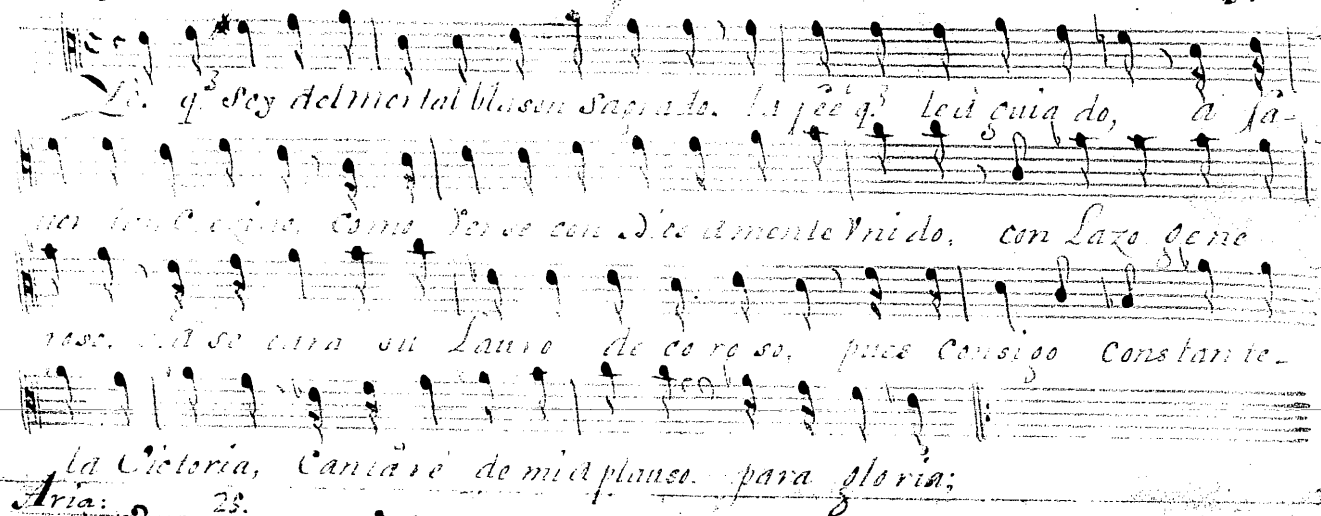 Yo. q.^e Soy del mortal blason Sagrado. la feé q.^e leá guiado, a fa-
uor tan Crecido, como Verse con Dios amente Vnido, con Lazo gene
roso. su Lauro decoroso, pues Consigo Constante-
la Victoria, Cantaré de mi aplauso. para gloria;
Aria: 2S.